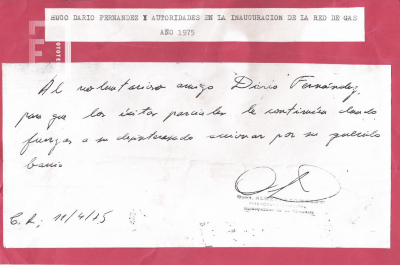 HUGO DARIO FERNANDEZ Y AUTORIDADES EN LA INAUGURACION DE LA RED DE GAS
AÑO 1975
Al voluntarioso amigo "Darío" Fernández,
para que los éxitos parciales le continúen dando
fuerzas a su desinteresado accionar por su querido
barrio
C.R. 11/4/75